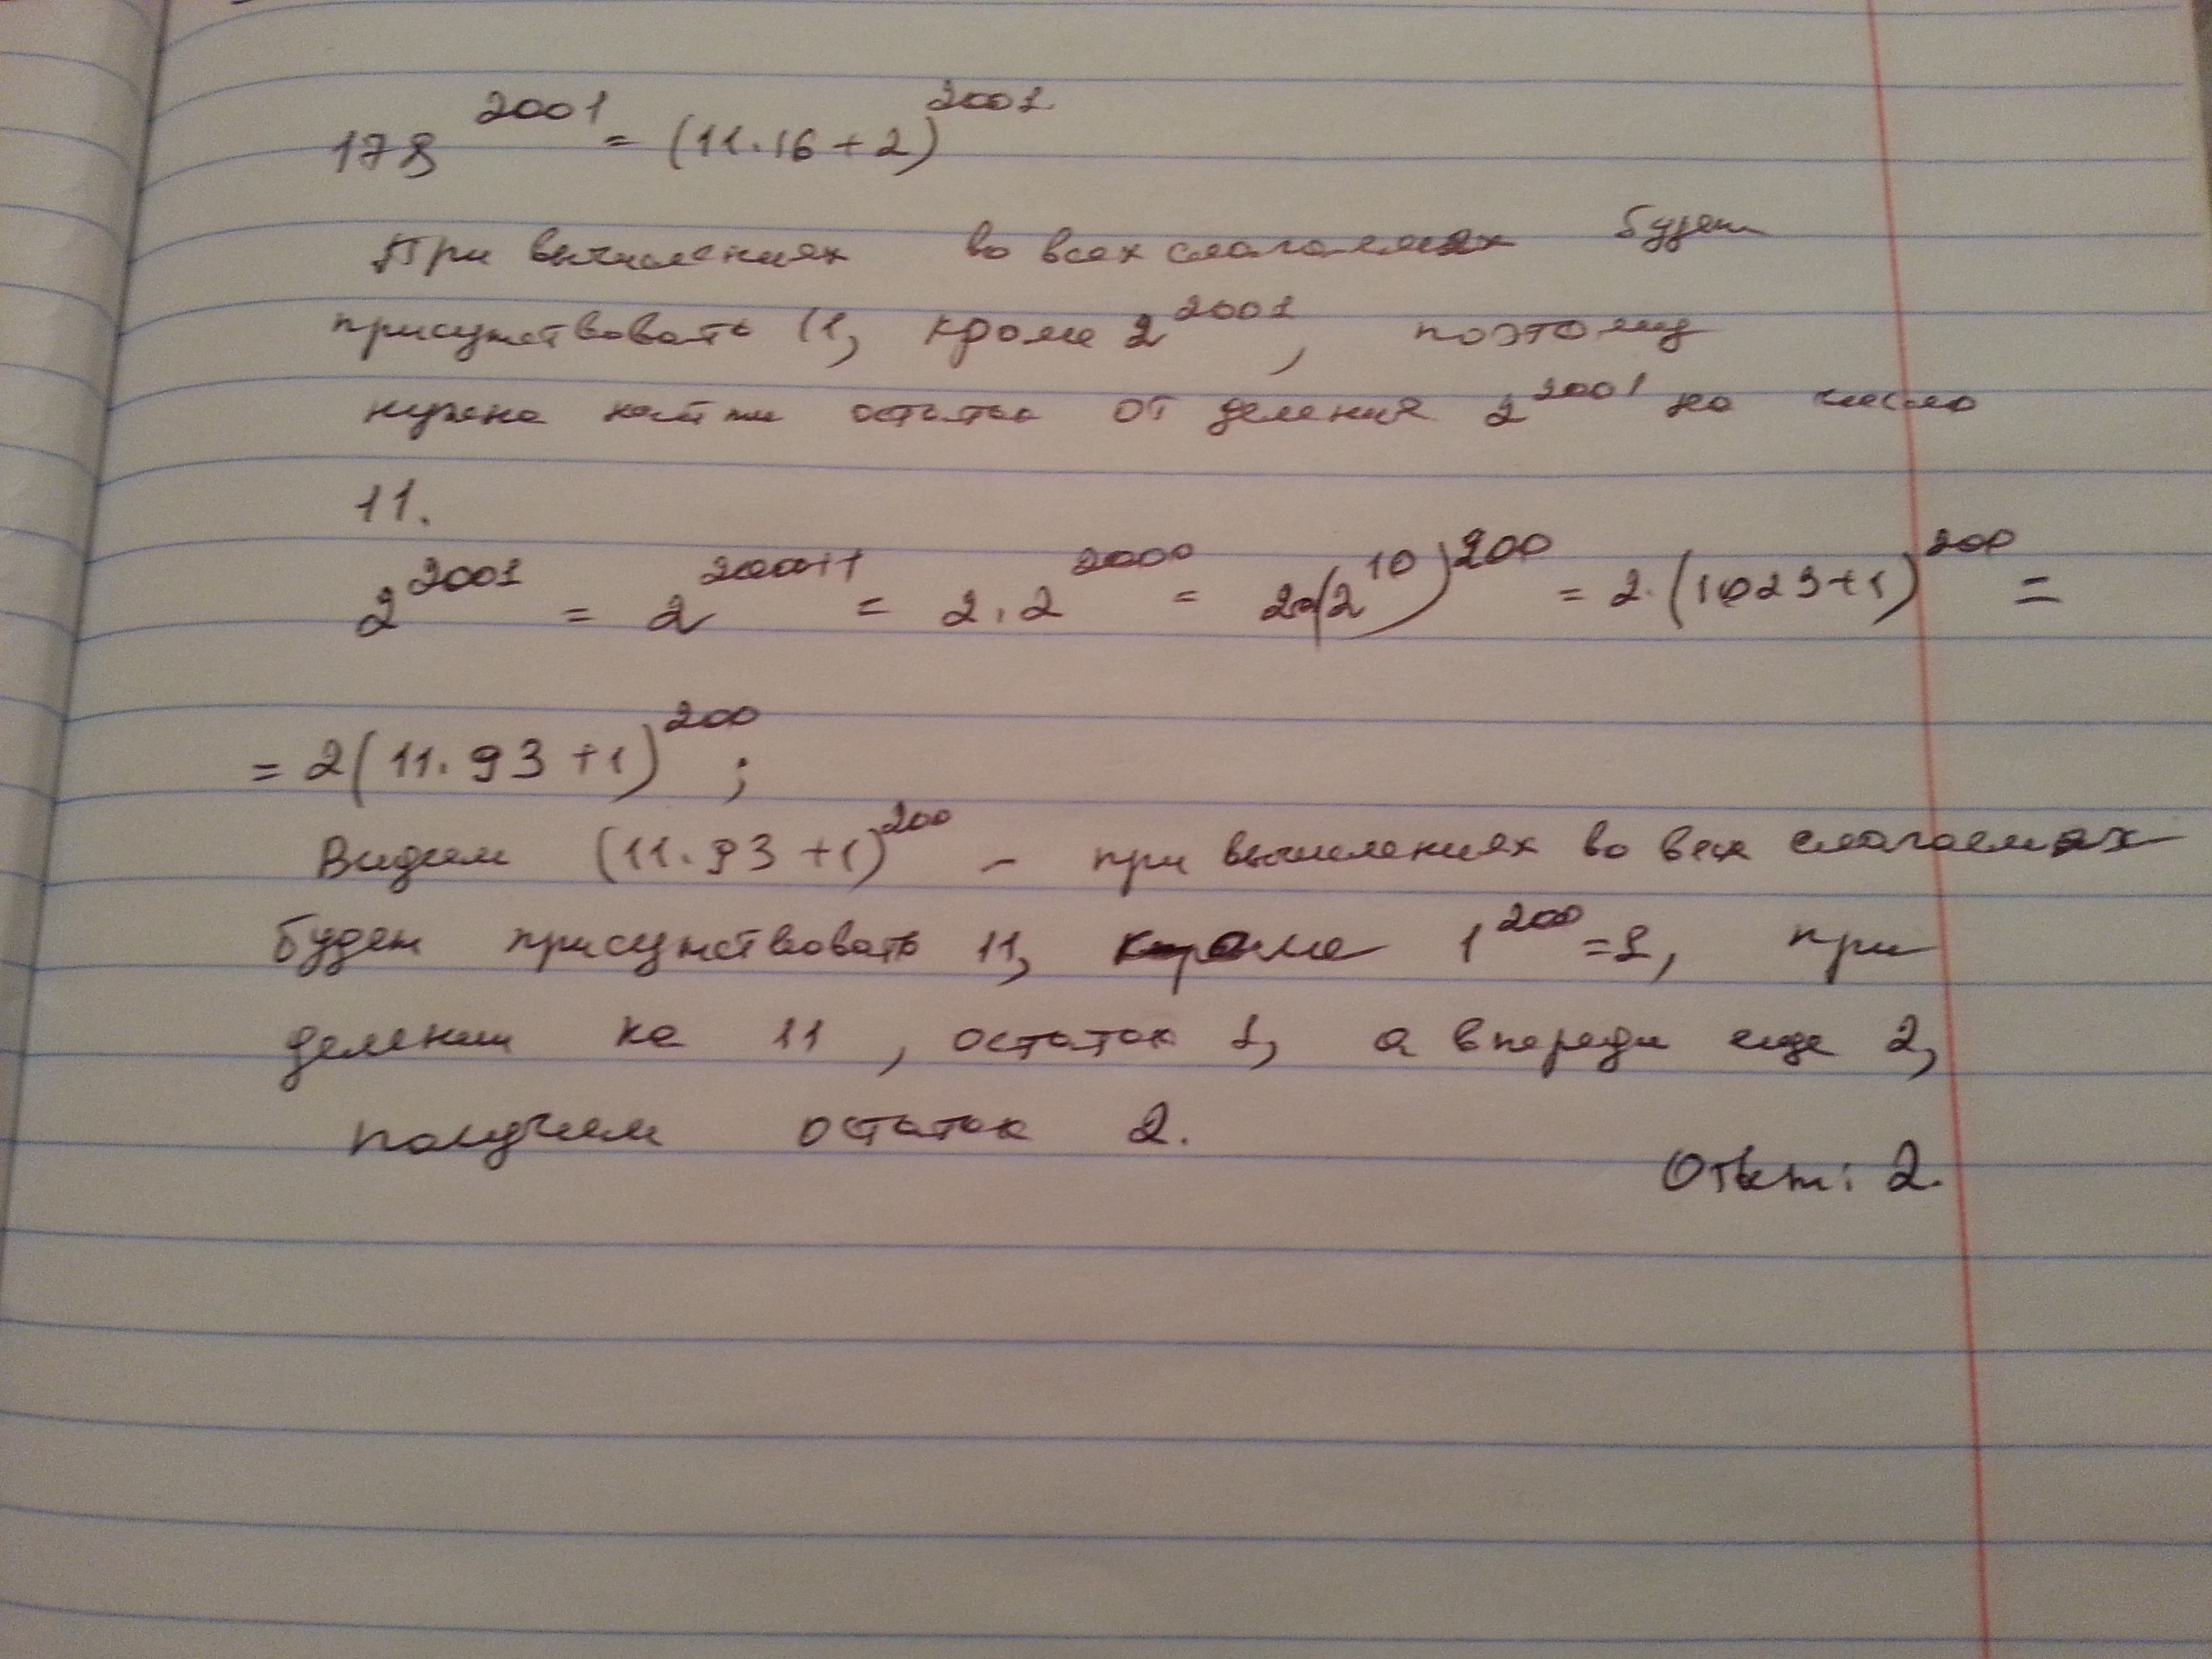 178^2001 = (11·16+2)^2001
При вычислениях во всех слагаемых будет
присутствовать 11, кроме 2^2001, поэтому
нужно найти остаток от деления 2^2001 на число
11.
2^2001 = 2^2000+1 = 2·2^2000 = 2·(2^10)^200 = 2·(1023+1)^200 =
= 2(11·93+1)^200 ;
Видим (11·93+1)^200 - при вычислениях во всех слагаемых
будет присутствовать 11, кроме 1^200=1, при
делении на 11, остаток 1, а впереди еще 2,
получаем остаток 2.
Ответ: 2.